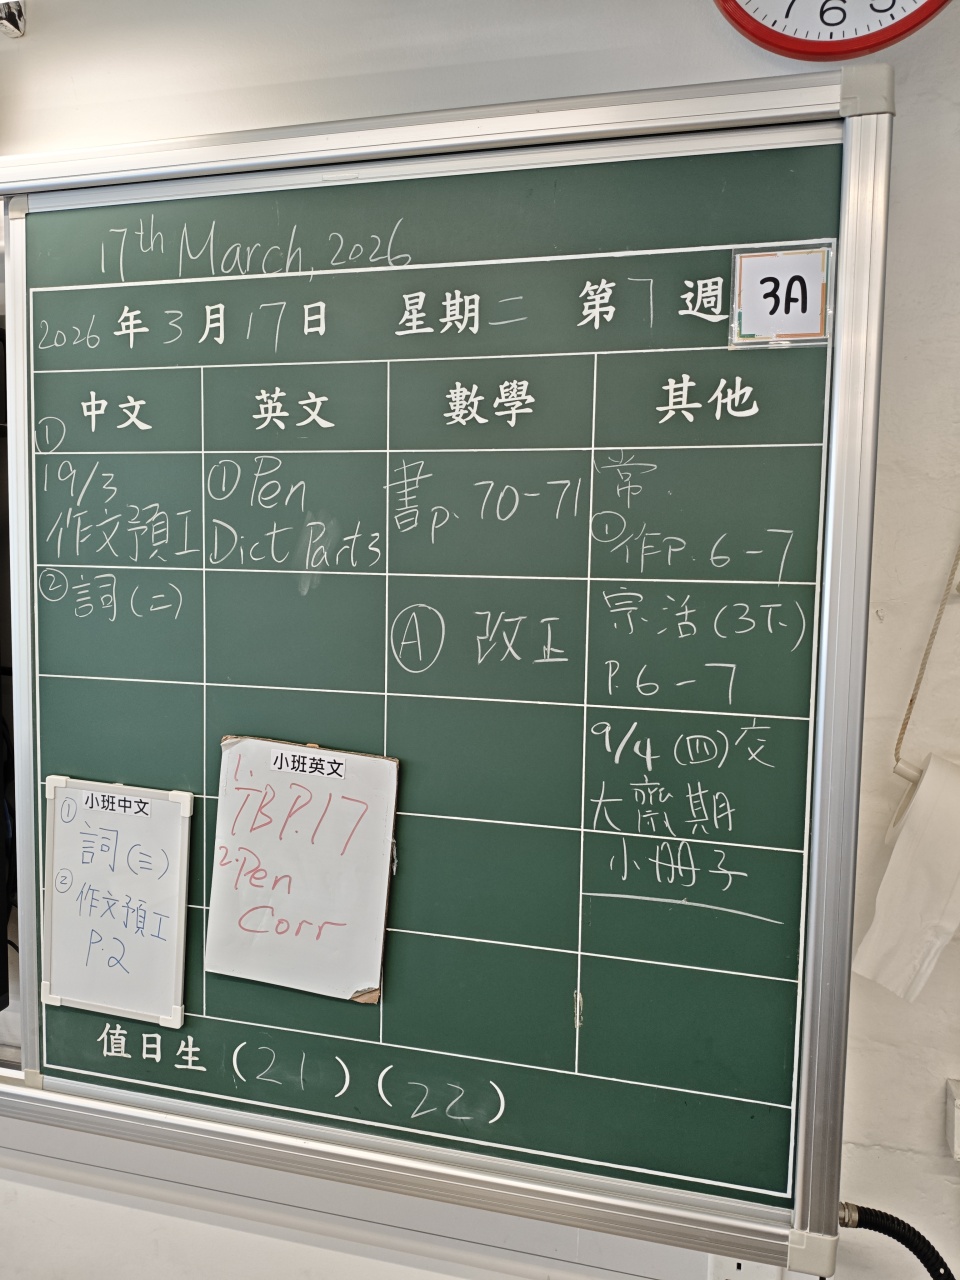 7 6 5
17th March, 2026
2026年3月17日 星期二 第7週 3A
中文 英文 數學 其他
①
19/3
作文預工
②詞(二)
①Pen
Dict Part3
書p. 70-71
Ⓐ 改正
常
①作P. 6-7
宗.活(3下)
P.6-7
9/4(四)交
大齋期
小冊子
小班中文
①
詞(三)
②
作文預工
P.2
小班英文
1.
TB P.17
2.Pen
Corr
值日生(21)(22)